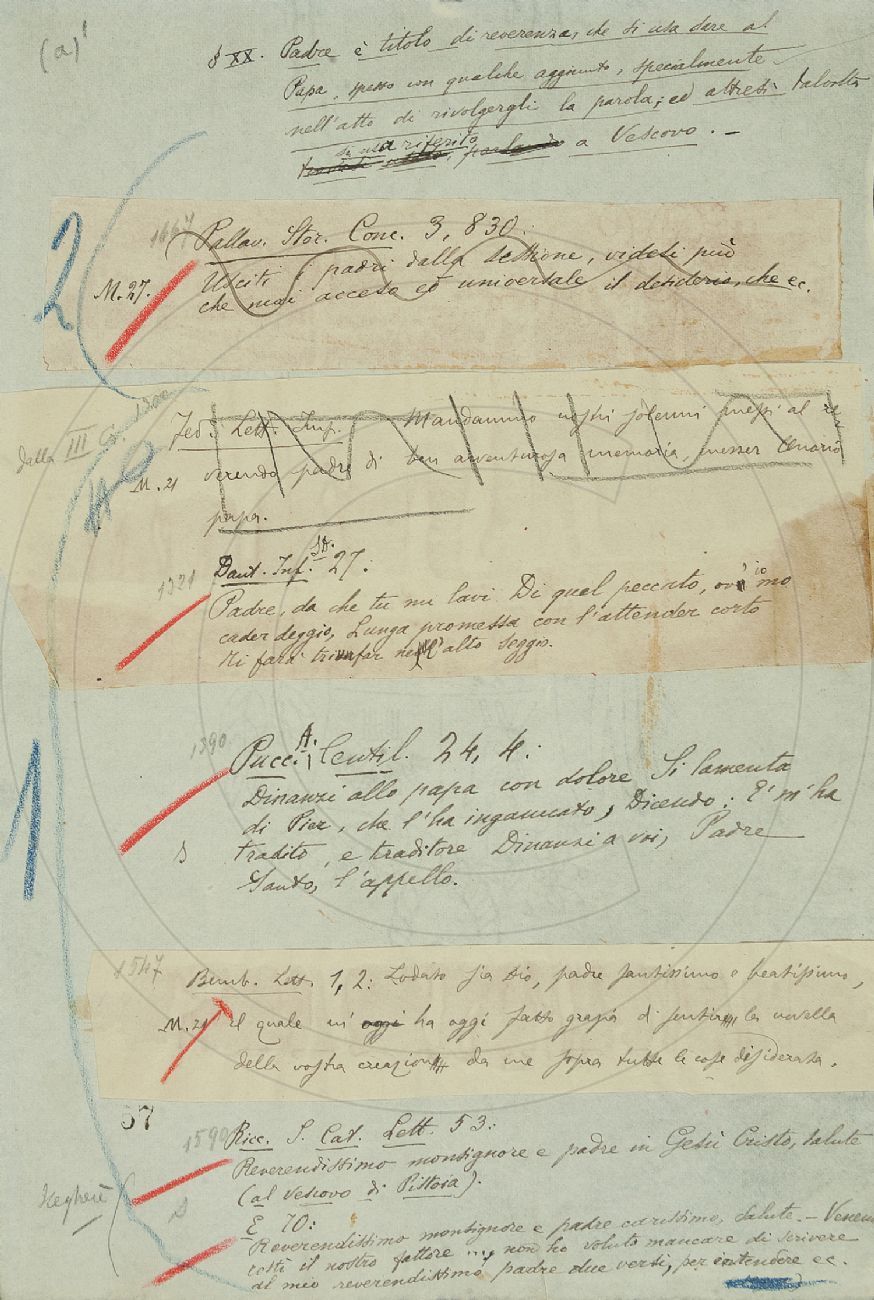 (a)'
§ XX. Padre è titolo di reverenza, che si usa dare al
Papa, spesso con qualche aggiunto, specialmente
nell'atto di rivolgergli la parola; ed altresì talvolta
si usa riferito
a Vescovo. —
2
1667
Pallav. Stor. Conc. 3, 830:
M. 27.
Usciti i padri dalla sessione, videsi più
che mai acceso ed universale il desiderio, che ec.
dalla III Cr. 1300
Fed. Lett. Imp. Mandammo nostri solenni messi al re
M. 21
verendo padre di ben avventurosa memoria, messer Onorio
papa.
1321
Dant. Inf. 27:
Padre, da che tu mi lavi Di quel peccato, ov'io mo
cader deggio, Lunga promessa con l'attender corto
Ti farà trionfar nell'alto seggio.
1
1390
Pucc. A. Centil. 24, 4:
Dinanzi allo papa con dolore Si lamenta
di Pier, che l'ha ingannato, Dicendo: E' m'ha
tradito, e traditore Dinanzi a voi, Padre
Santo, l'appello.
1547
Bemb. Lett. 1, 2: Lodato sia Dio, padre santissimo e beatissimo,
M. 21
il quale m' oggi ha oggi fatto grazia di sentire la novella
della vostra creazione da me sopra tutte le cose disiderata.
57
1590
Ricc. S. Cat. Lett. 53:
Reverendissimo monsignore e padre in Gesù Cristo, salute
(al Vescovo di Pistoia).
Segherè
E 70:
Reverendissimo monsignore e padre carissimo, salute. – Venendo
costì il nostro fattore non ho voluto mancare di scrivere
al mio reverendissimo padre due versi, per intendere ec.